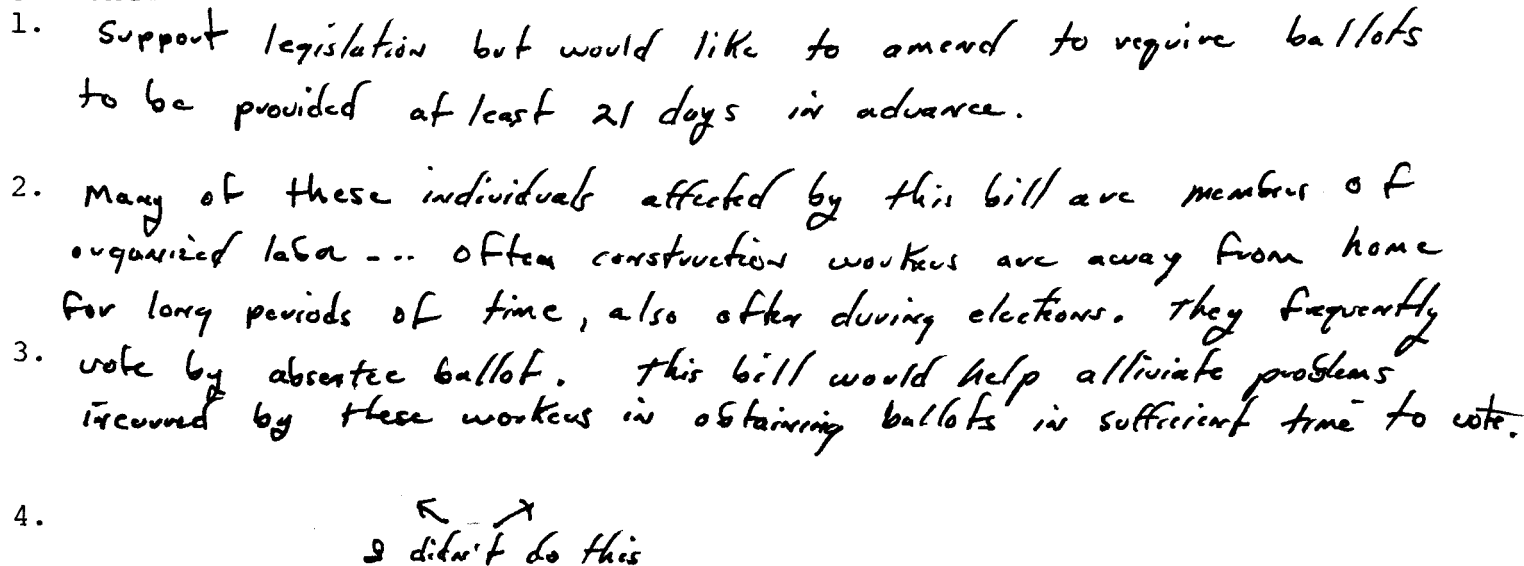 1. Support legislation but would like to amend to require ballots
to be provided at least 21 days in advance.
2. Many of these individuals affected by this bill are members of
organized labor --- often construction workers are away from home
for long periods of time, also often during elections. They frequently
3. vote by absentee ballot. This bill would help alliviate problems
incurred by these workers in obtaining ballots in sufficient time to vote.
4.
I didn't do this